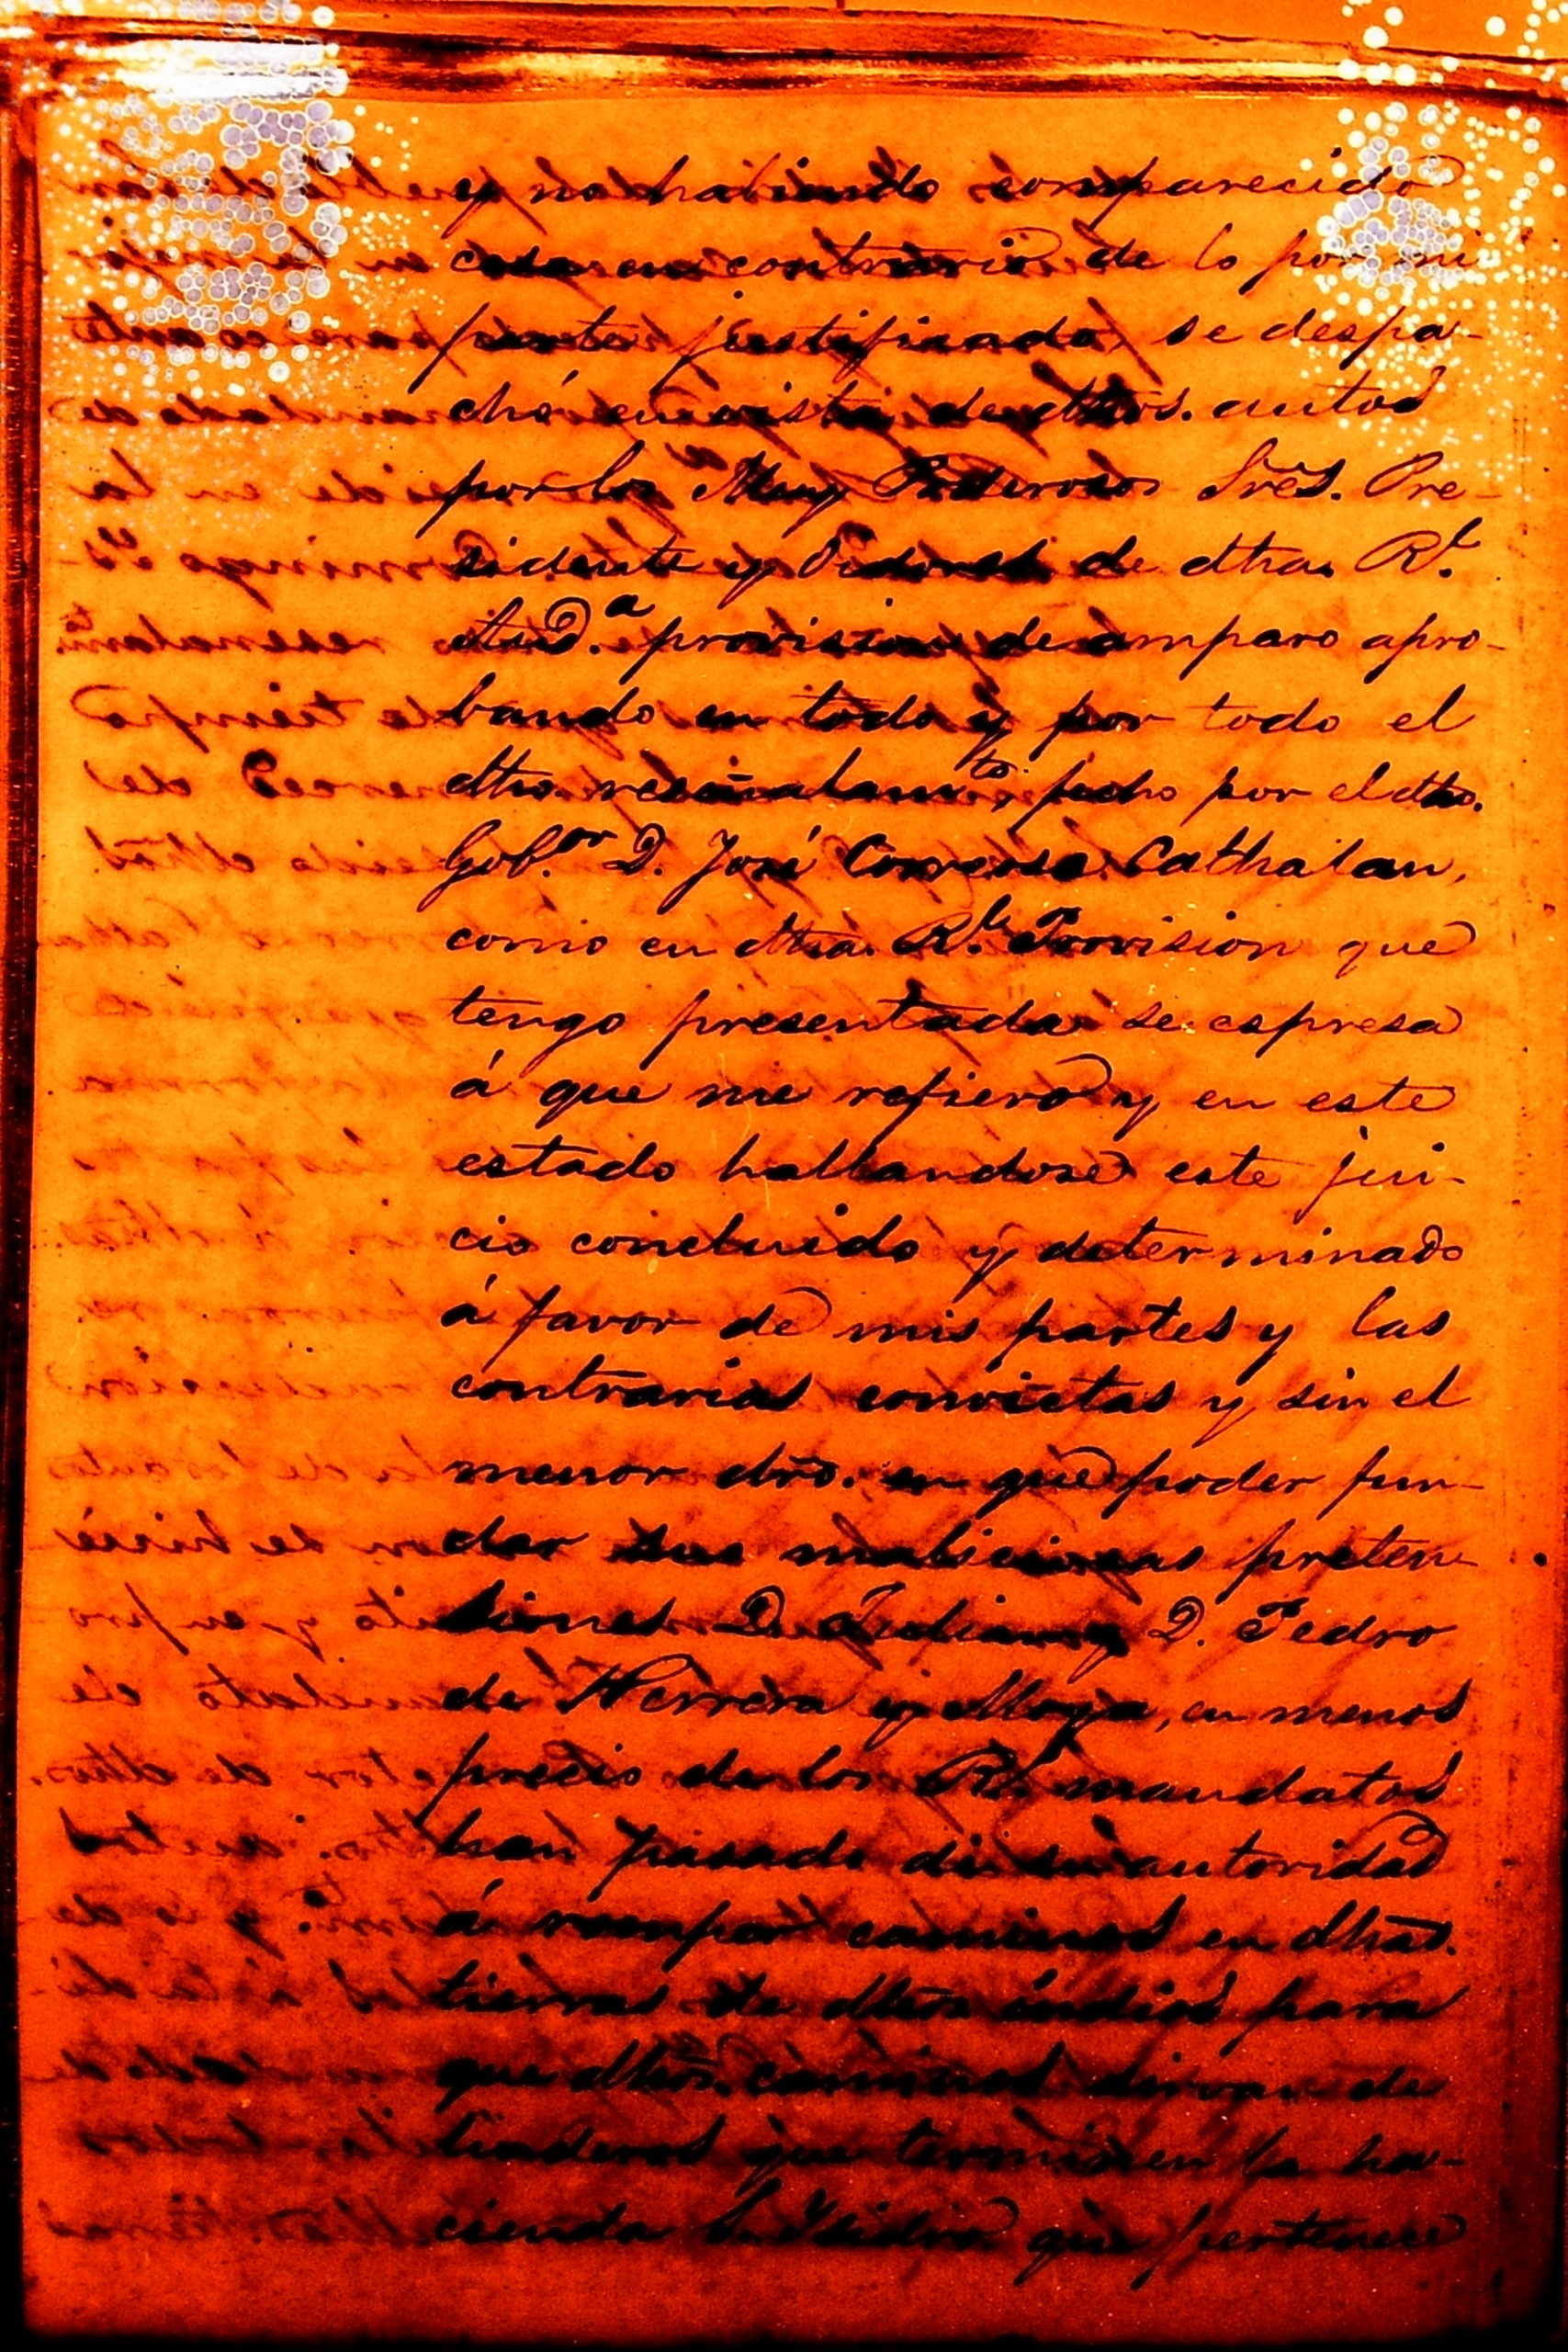 y no habiendo comparecido
cosa en contrario de lo por mi
parte justificado, se despa-
chó en vista de dthos. autos
por los Muy Poderosos Sres. Pre-
sidente y Oidores de dtha. Rl.
Auda. provision de amparo apro-
bando en todo y por todo el
dtho. reseñalamto. fecho por el dtho.
Gobor. D. José Correose Cathalan,
como en dtha. Rl. Provision que
tengo presentada se espresa
á que me refiero y en este
estado hallandose este jui-
cio concluido y determinado
á favor de mis partes y las
contrarias convictas y sin el
menor dro. en que poder fun-
dar sus maliciosas preten-
siones D. Julian y D. Pedro
de Herrera y Moya, en menos
precio de los Rs. mandatos
han pasado de su autoridad
á romper caminos en dthas.
tierras de dthos indios para
que dthos. caminos sirvan de
linderos que terminen la ha-
cienda S. Ysidro que pertenece